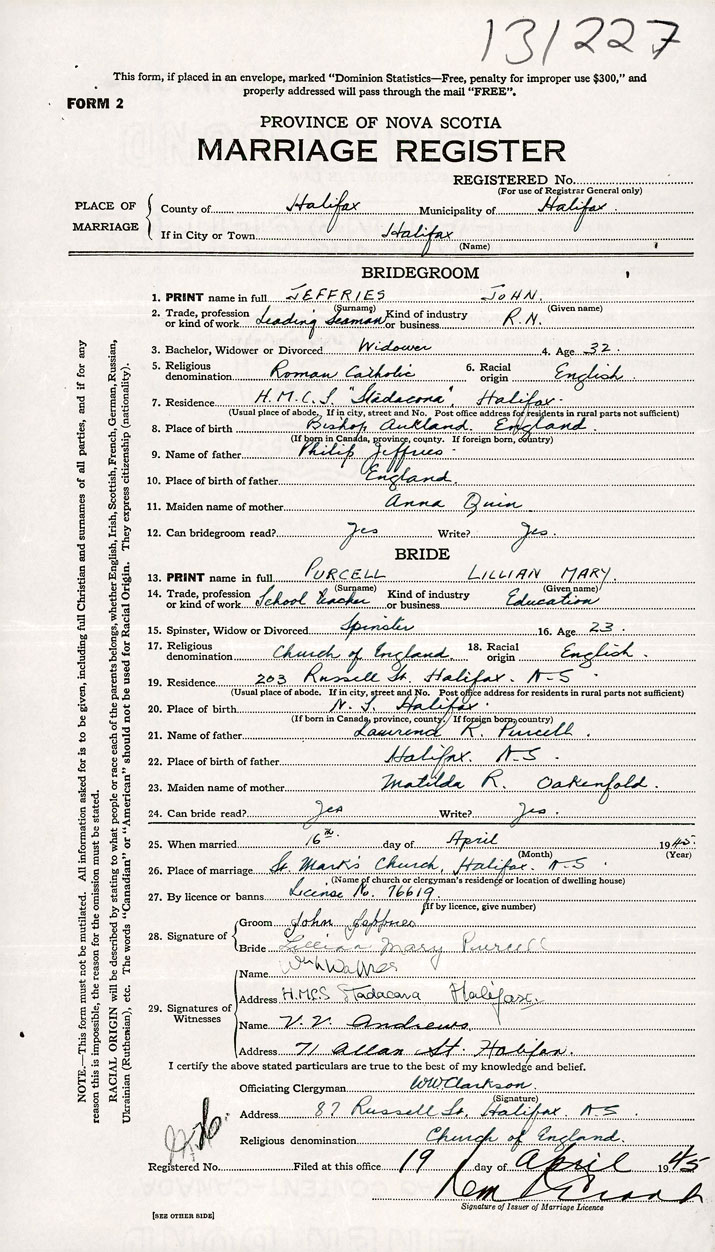 131227
This form, if placed in an envelope, marked "Dominion Statistics—Free, penalty for improper use $300," and
properly addressed will pass through the mail "FREE".
FORM 2
PROVINCE OF NOVA SCOTIA
MARRIAGE REGISTER
REGISTERED No.
(For use of Registrar General only)
PLACE OF MARRIAGE
County of Halifax Municipality of Halifax.
If in City or Town Halifax
(Name)
BRIDEGROOM
1. PRINT name in full JEFFRIES JOHN.
(Surname) (Given name)
2. Trade, profession or kind of work Leading Seaman Kind of industry or business R.N.
3. Bachelor, Widower or Divorced Widower 4. Age 32.
5. Religious denomination Roman Catholic 6. Racial origin English.
7. Residence H.M.C.S. "Stadacona", Halifax.
(Usual place of abode. If in city, street and No. Post office address for residents in rural parts not sufficient)
8. Place of birth Bishop Aukland. England.
(If born in Canada, province, county. If foreign born, country)
9. Name of father Philip Jeffries.
10. Place of birth of father England.
11. Maiden name of mother Anna Quin
12. Can bridegroom read? Yes Write? Yes.
BRIDE
13. PRINT name in full PURCELL LILLIAN MARY.
(Surname) (Given name)
14. Trade, profession or kind of work School teacher Kind of industry or business Education
15. Spinster, Widow or Divorced Spinster 16. Age 23.
17. Religious denomination Church of England. 18. Racial origin English.
19. Residence 203 Russell St. Halifax. N-S
(Usual place of abode. If in city, street and No. Post office address for residents in rural parts not sufficient)
20. Place of birth N.S. Halifax.
(If born in Canada, province, county. If foreign born, country)
21. Name of father Lawrence R. Purcell.
22. Place of birth of father Halifax. N-S.
23. Maiden name of mother Matilda R. Oakenfold.
24. Can bride read? Yes Write? Yes.
25. When married 16th day of April 1945.
(Month) (Year)
26. Place of marriage St. Mark's Church, Halifax. N-S.
(Name of church or clergyman's residence or location of dwelling house)
27. By licence or banns License No. 76619.
(If by licence, give number)
28. Signature of
Groom John Jeffries
Bride Lillian Mary Purcell
29. Signatures of Witnesses
Name
Address H.M.C.S Stadacona Halifax.
Name V. V. Andrews
Address 71 Allan St. Halifax.
I certify the above stated particulars are true to the best of my knowledge and belief.
Officiating Clergyman WW Clarkson.
(Signature)
Address 87 Russell St, Halifax. N-S
Religious denomination Church of England.
Registered No. Filed at this office 19 day of April 1945
Signature of Issuer of Marriage Licence
[SEE OTHER SIDE]
NOTE.—This form must not be mutilated. All information asked for is to be given, including full Christian and surnames of all parties, and if for any
reason this is impossible, the reason for the omission must be stated.
RACIAL ORIGIN will be described by stating to what people or race each of the parents belongs, whether English, Irish, Scottish, French, German, Russian,
Ukrainian (Ruthenian), etc. The words "Canadian" or "American" should not be used for Racial Origin. They express citizenship (nationality).